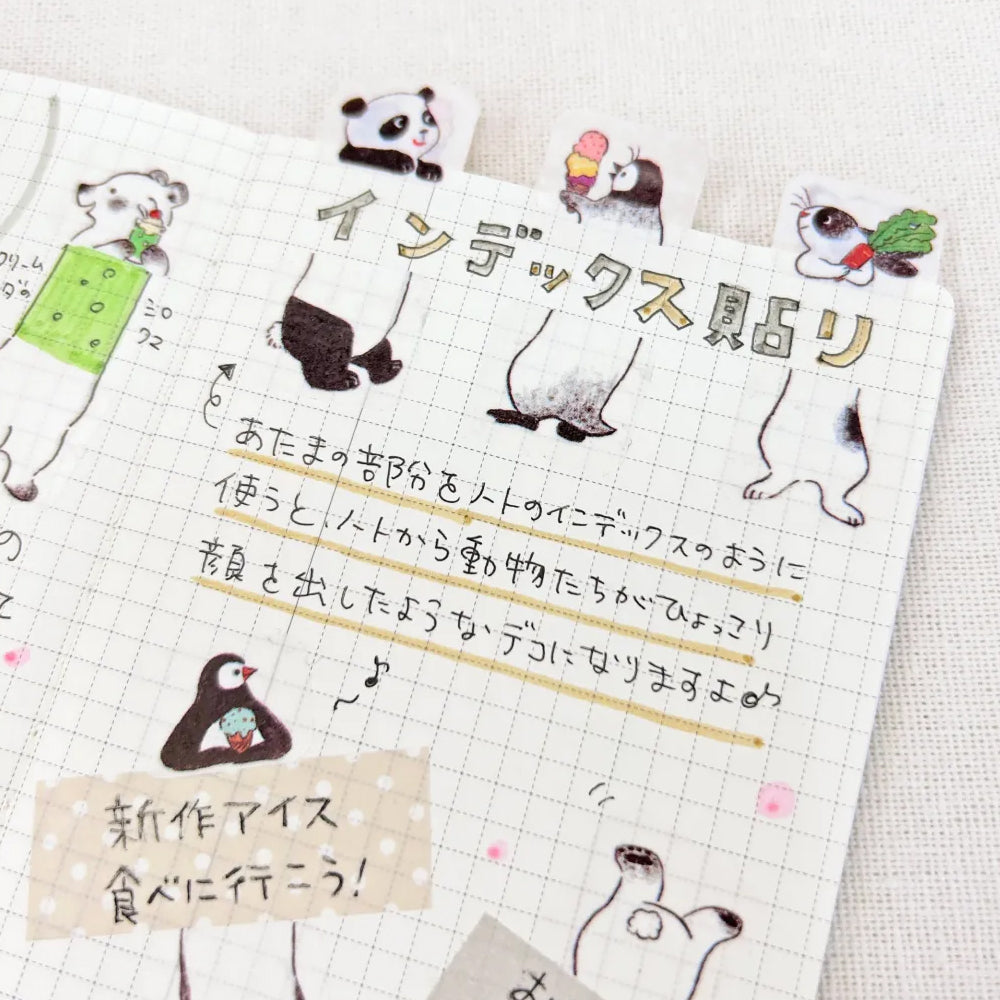 インデックス貼り
あたまの部分をノートのインデックスのように
使うと、ノートから動物たちがひょっこり
顔を出したようなデコになりますよ♪
新作アイス
食べに行こう!
クリーム
ダの
シロ
クマ
の
て